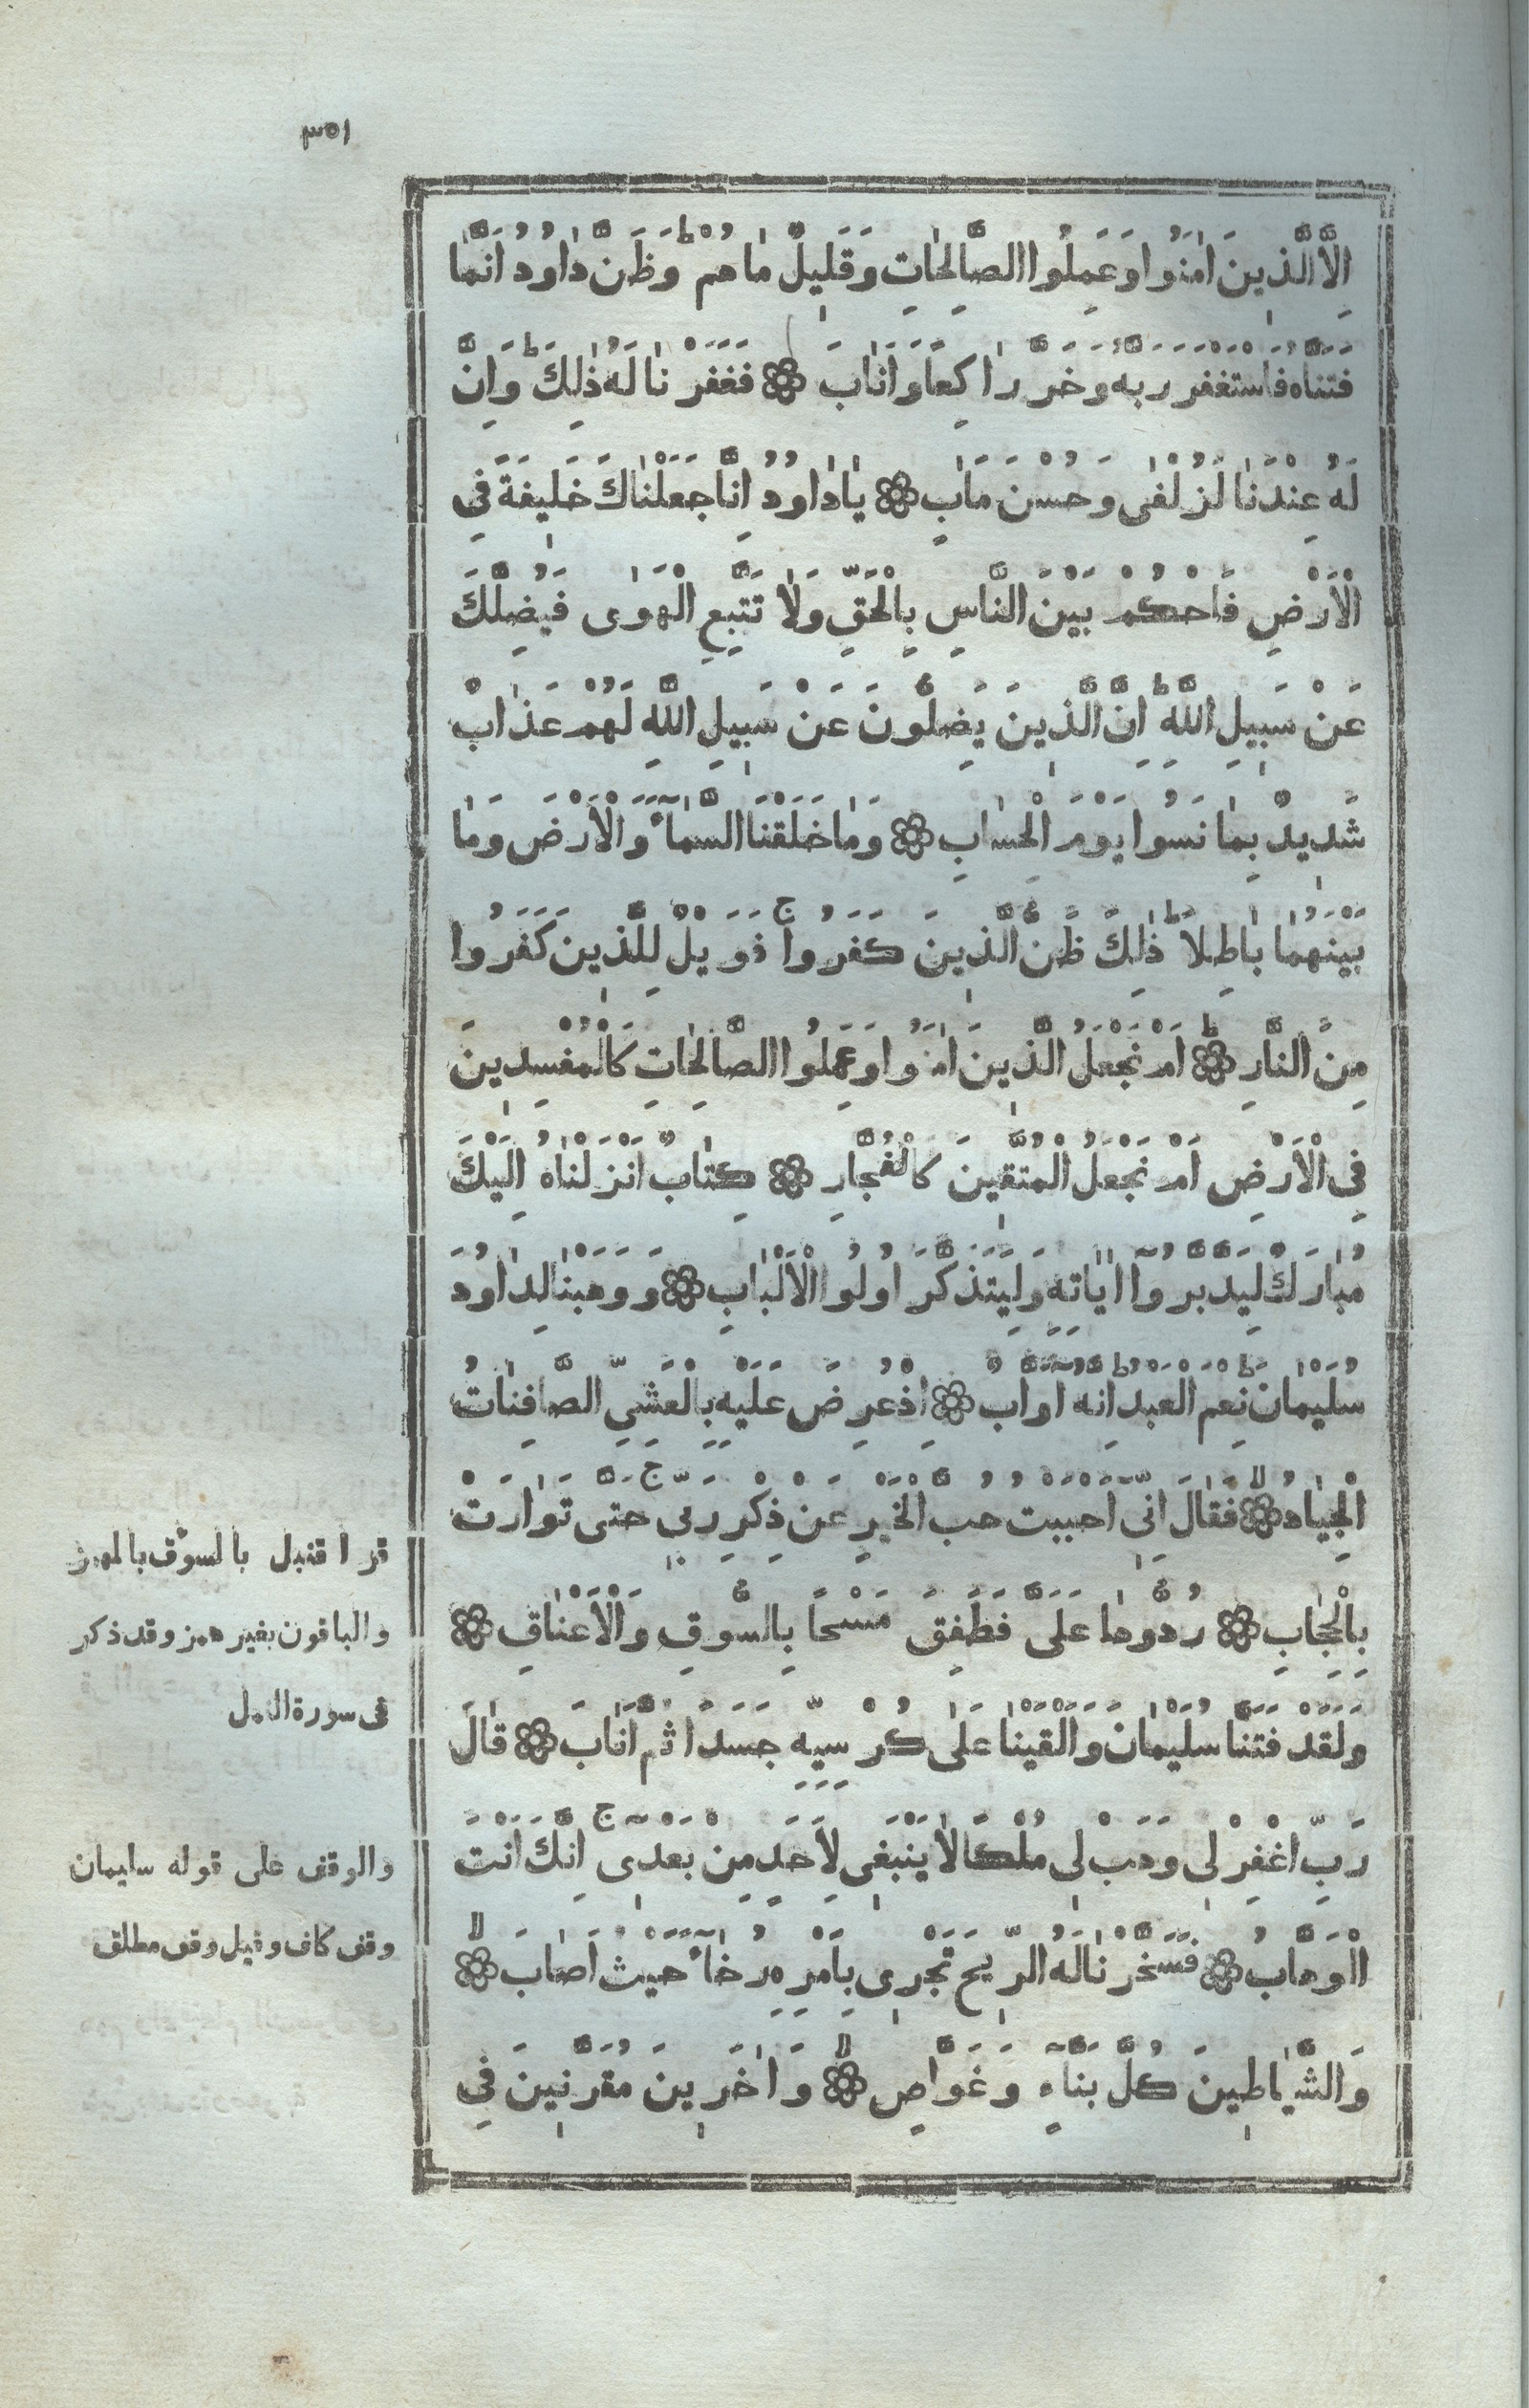 ٣٥١
اِلَّا الَّذِينَ اٰمَنُوا وَعَمِلُوا الصَّالِحَاتِ وَقَلِيلٌ مَاهُمْ ط وَظَنَّ دَاوُدُ اَنَّمَا
فَتَنَّاهُ فَاسْتَغْفَرَ رَبَّهُ وَخَرَّ رَاكِعًا وَاَنَابَ ۞ فَغَفَرْنَا لَهُ ذٰلِكَ ط وَاِنَّ
لَهُ عِنْدَنَا لَزُلْفٰى وَحُسْنَ مَاٰبٍ ۞ يَا دَاوُدُ اِنَّا جَعَلْنَاكَ خَلِيفَةً فِي
الْاَرْضِ فَاحْكُمْ بَيْنَ النَّاسِ بِالْحَقِّ وَلَا تَتَّبِعِ الْهَوٰى فَيُضِلَّكَ
عَنْ سَبِيلِ اللّٰهِ ط اِنَّ الَّذِينَ يَضِلُّونَ عَنْ سَبِيلِ اللّٰهِ لَهُمْ عَذَابٌ
شَدِيدٌ بِمَا نَسُوا يَوْمَ الْحِسَابِ ۞ وَمَا خَلَقْنَا السَّمَآءَ وَالْاَرْضَ وَمَا
بَيْنَهُمَا بَاطِلًا ط ذٰلِكَ ظَنُّ الَّذِينَ كَفَرُوا ج فَوَيْلٌ لِلَّذِينَ كَفَرُوا
مِنَ النَّارِ ط ۞ اَمْ نَجْعَلُ الَّذِينَ اٰمَنُوا وَعَمِلُوا الصَّالِحَاتِ كَالْمُفْسِدِينَ
فِي الْاَرْضِ اَمْ نَجْعَلُ الْمُتَّقِينَ كَالْفُجَّارِ ۞ كِتَابٌ اَنْزَلْنَاهُ اِلَيْكَ
مُبَارَكٌ لِيَدَّبَّرُوٓا اٰيَاتِهِ وَلِيَتَذَكَّرَ اُولُوا الْاَلْبَابِ ۞ وَوَهَبْنَا لِدَاوُدَ
سُلَيْمَانَ ط نِعْمَ الْعَبْدُ ط اِنَّهُ اَوَّابٌ ۞ اِذْ عُرِضَ عَلَيْهِ بِالْعَشِيِّ الصَّافِنَاتُ
الْجِيَادُ لا ۞ فَقَالَ اِنِّي اَحْبَبْتُ حُبَّ الْخَيْرِ عَنْ ذِكْرِ رَبِّي ج حَتّٰى تَوَارَتْ
بِالْحِجَابِ ۞ رُدُّوهَا عَلَيَّ فَطَفِقَ مَسْحًا بِالسُّوقِ وَالْاَعْنَاقِ ۞
وَلَقَدْ فَتَنَّا سُلَيْمَانَ وَاَلْقَيْنَا عَلٰى كُرْسِيِّهِ جَسَدًا ثُمَّ اَنَابَ ۞ قَالَ
رَبِّ اغْفِرْ لِي وَهَبْ لِي مُلْكًا لَا يَنْبَغِي لِاَحَدٍ مِنْ بَعْدِي ج اِنَّكَ اَنْتَ
الْوَهَّابُ ۞ فَسَخَّرْنَا لَهُ الرِّيحَ تَجْرِي بِاَمْرِهِ رُخَآءً حَيْثُ اَصَابَ لا ۞
وَالشَّيَاطِينَ كُلَّ بَنَّآءٍ وَغَوَّاصٍ لا ۞ وَاٰخَرِينَ مُقَرَّنِينَ فِي
قرا قنبل بالسؤق بالهمز
والباقون بغير همز وقد ذكر
فى سورة النمل
والوقف على قوله سليمان
وقف كاف وقيل وقف مطلق